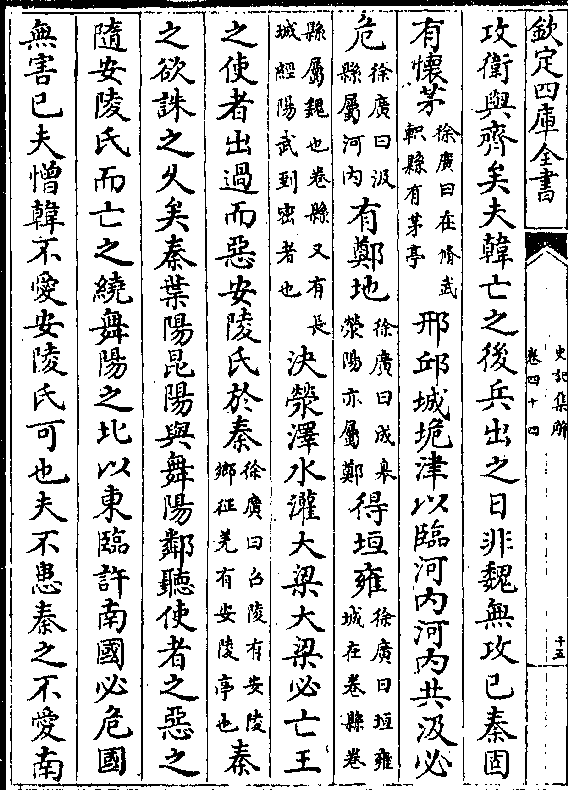 欽定四庫全書
史記集解
卷四十四
十五
攻衛與齊矣夫韓亡之後兵出之日非魏無攻已秦固
有懷茅徐廣曰在脩武軹縣有茅亭邢邱城垝津以臨河内河内共汲必
危徐廣曰汲縣屬河内有鄭地徐廣曰成臯滎陽亦屬鄭得垣雍徐廣曰垣雍城在卷縣卷
縣屬魏也卷縣又有長城經陽武到密者也決滎澤水灌大梁大梁必亡王
之使者出過而惡安陵氏於秦徐廣曰召陵有安陵鄉征羌有安陵亭也秦
之欲誅之久矣秦葉陽昆陽與舞陽鄰聽使者之惡之
隨安陵氏而亡之繞舞陽之北以東臨許南國必危國
無害已夫憎韓不愛安陵氏可也夫不患秦之不愛南